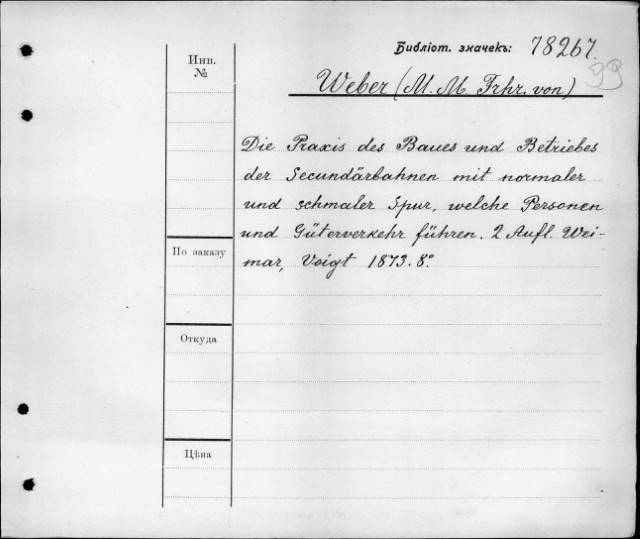 Библіот. значекъ: 78267.
99
Инв.
№
Weber (M. M. Frhr. von)
Die Praxis des Baues und Betriebes
der Secundärbahnen mit normaler
und schmaler Spur, welche Personen
und Güterverkehr führen. 2 Aufl. Wei-
mar, Voigt 1873. 8°.
По заказу
Откуда
Цѣна